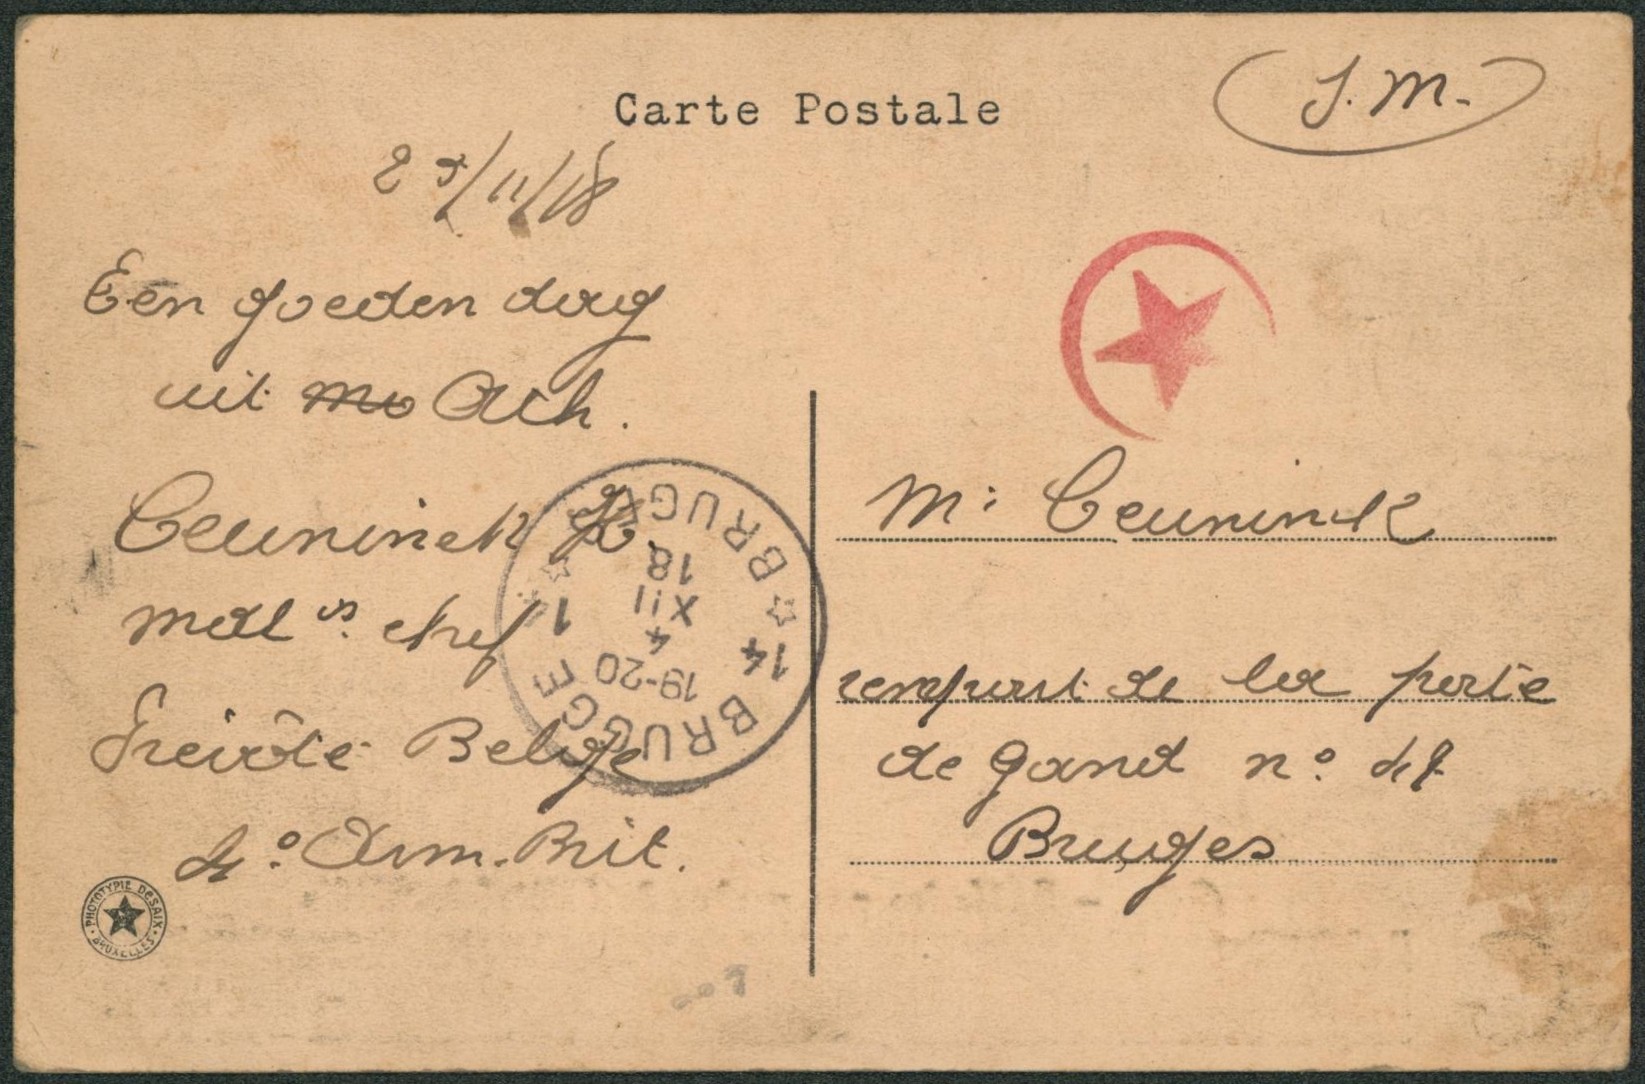 Carte Postale
S.M.
25/11/18
Een goeden dag
uit Ath.
Ceuninck
Mdl chef
Belge
4° Arm. Brit.
BRUGGE 14 BRUGGE 14
19-20
4
XII
18
Mr Ceuninck
rempart de la porte
de Gand n° 47
Bruges
PHOTOTYPIE DESAIX
BRUXELLES